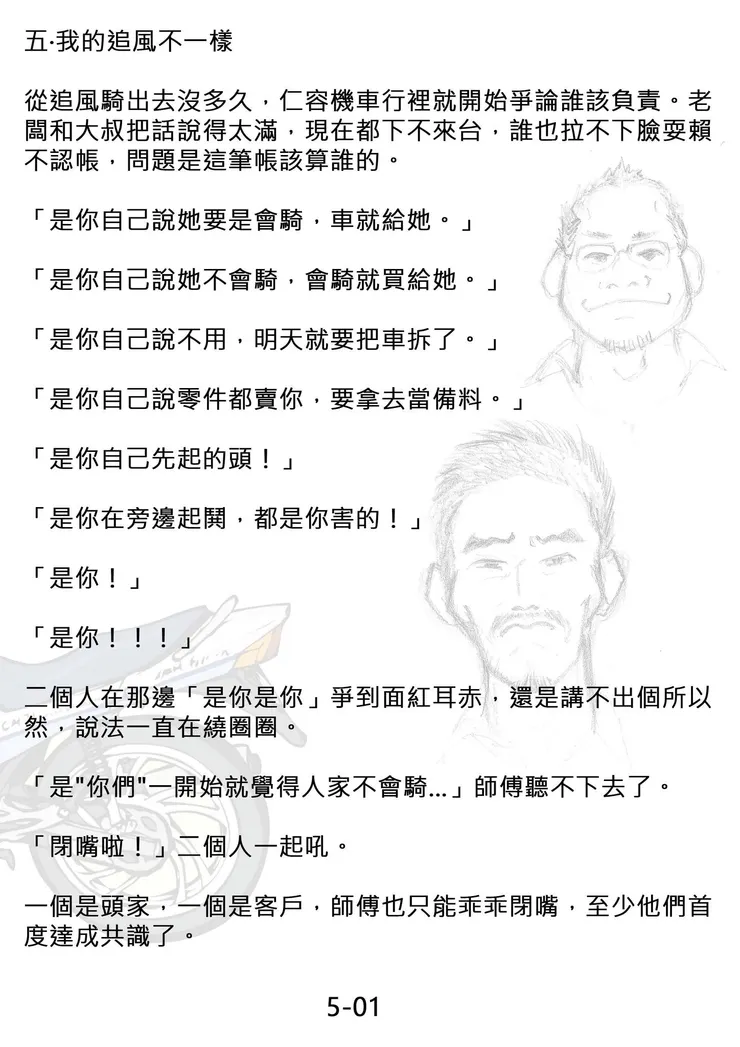 五·我的追風不一樣
從追風騎出去沒多久，仁容機車行裡就開始爭論誰該負責。老
闆和大叔把話說得太滿，現在都下不來台，誰也拉不下臉耍賴
不認帳，問題是這筆帳該算誰的。
「是你自己說她要是會騎，車就給她。」
「是你自己說她不會騎，會騎就買給她。」
「是你自己說不用，明天就要把車拆了。」
「是你自己說零件都賣你，要拿去當備料。」
「是你自己先起的頭！」
「是你在旁邊起鬨，都是你害的！」
「是你！」
「是你！！！」
二個人在那邊「是你是你」爭到面紅耳赤，還是講不出個所以
然，說法一直在繞圈圈。
「是"你們"一開始就覺得人家不會騎...」師傅聽不下去了。
「閉嘴啦！」二個人一起吼。
一個是頭家，一個是客戶，師傅也只能乖乖閉嘴，至少他們首
度達成共識了。
5-01